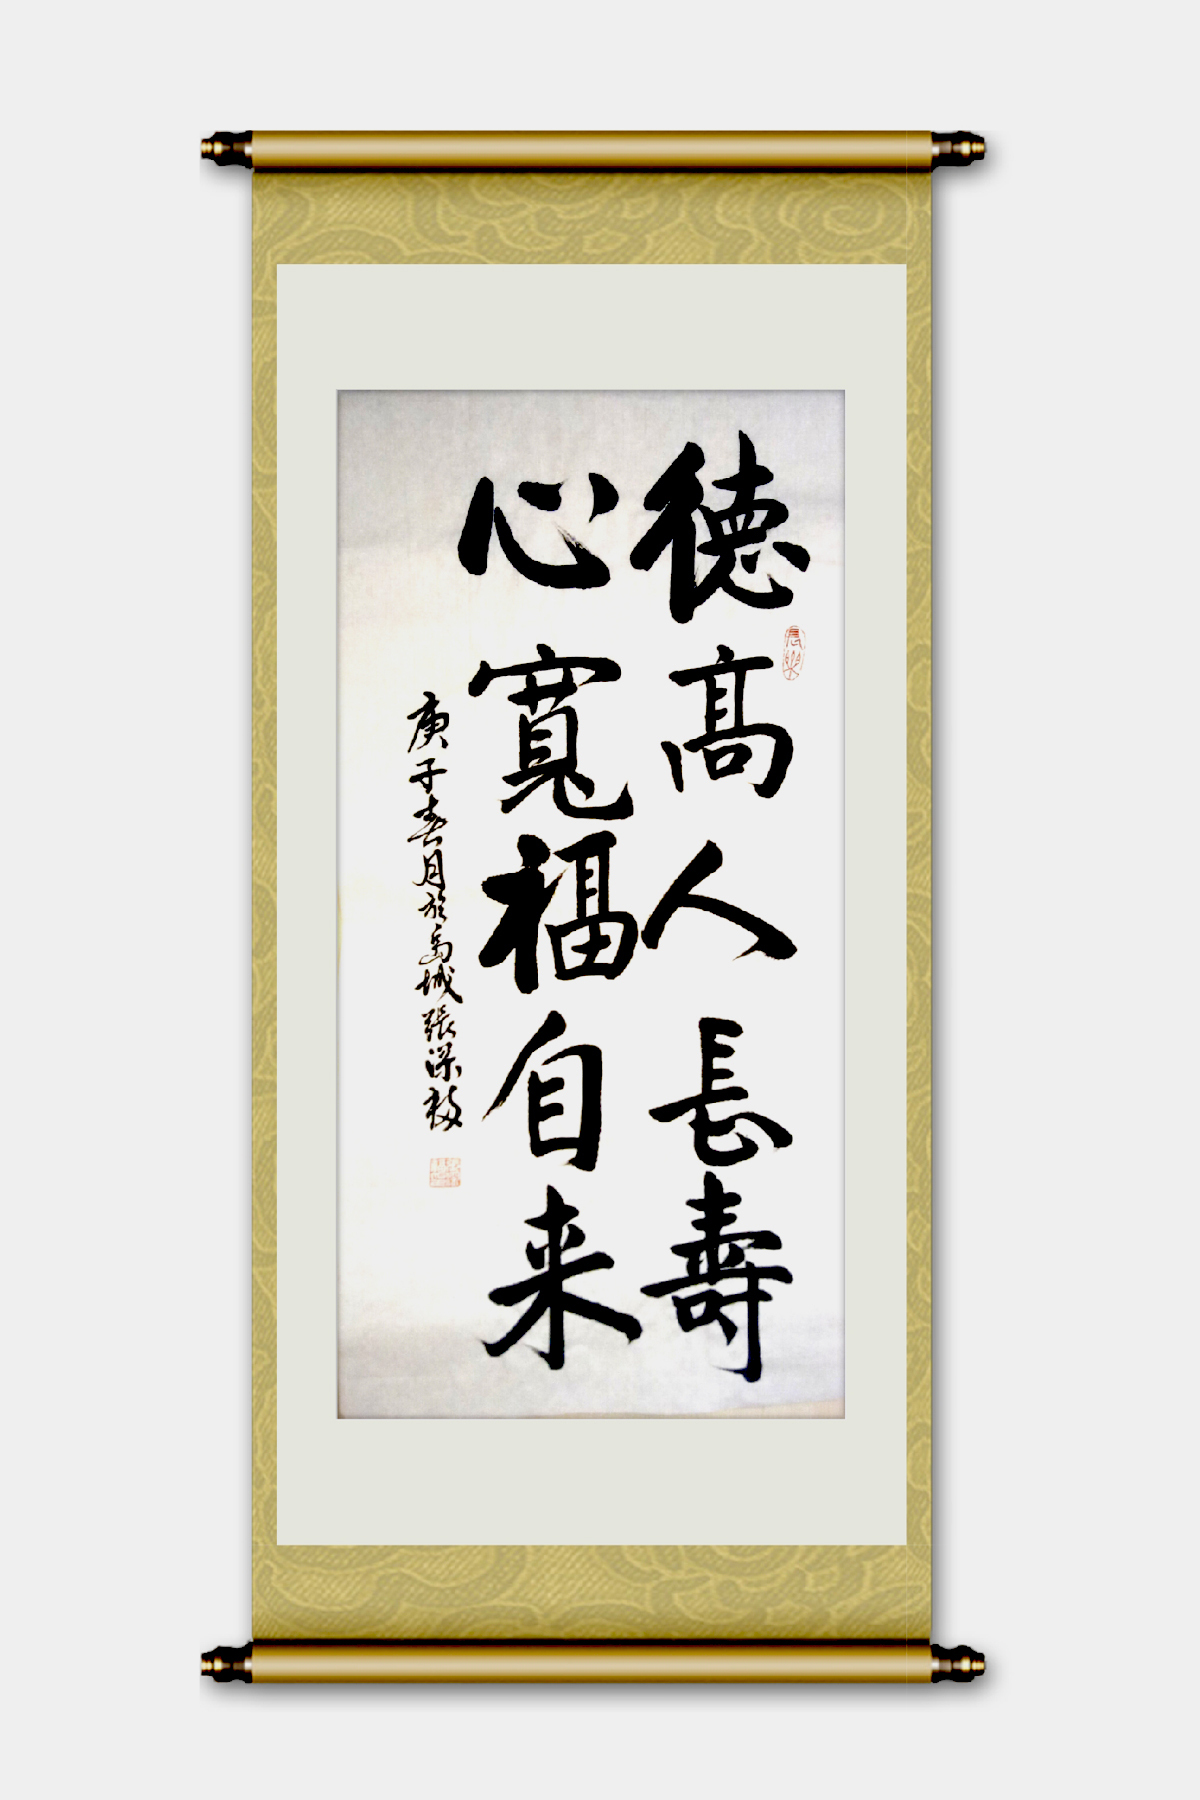 德高人長壽
心寬福自来
庚子春月於高城張深秋
長樂